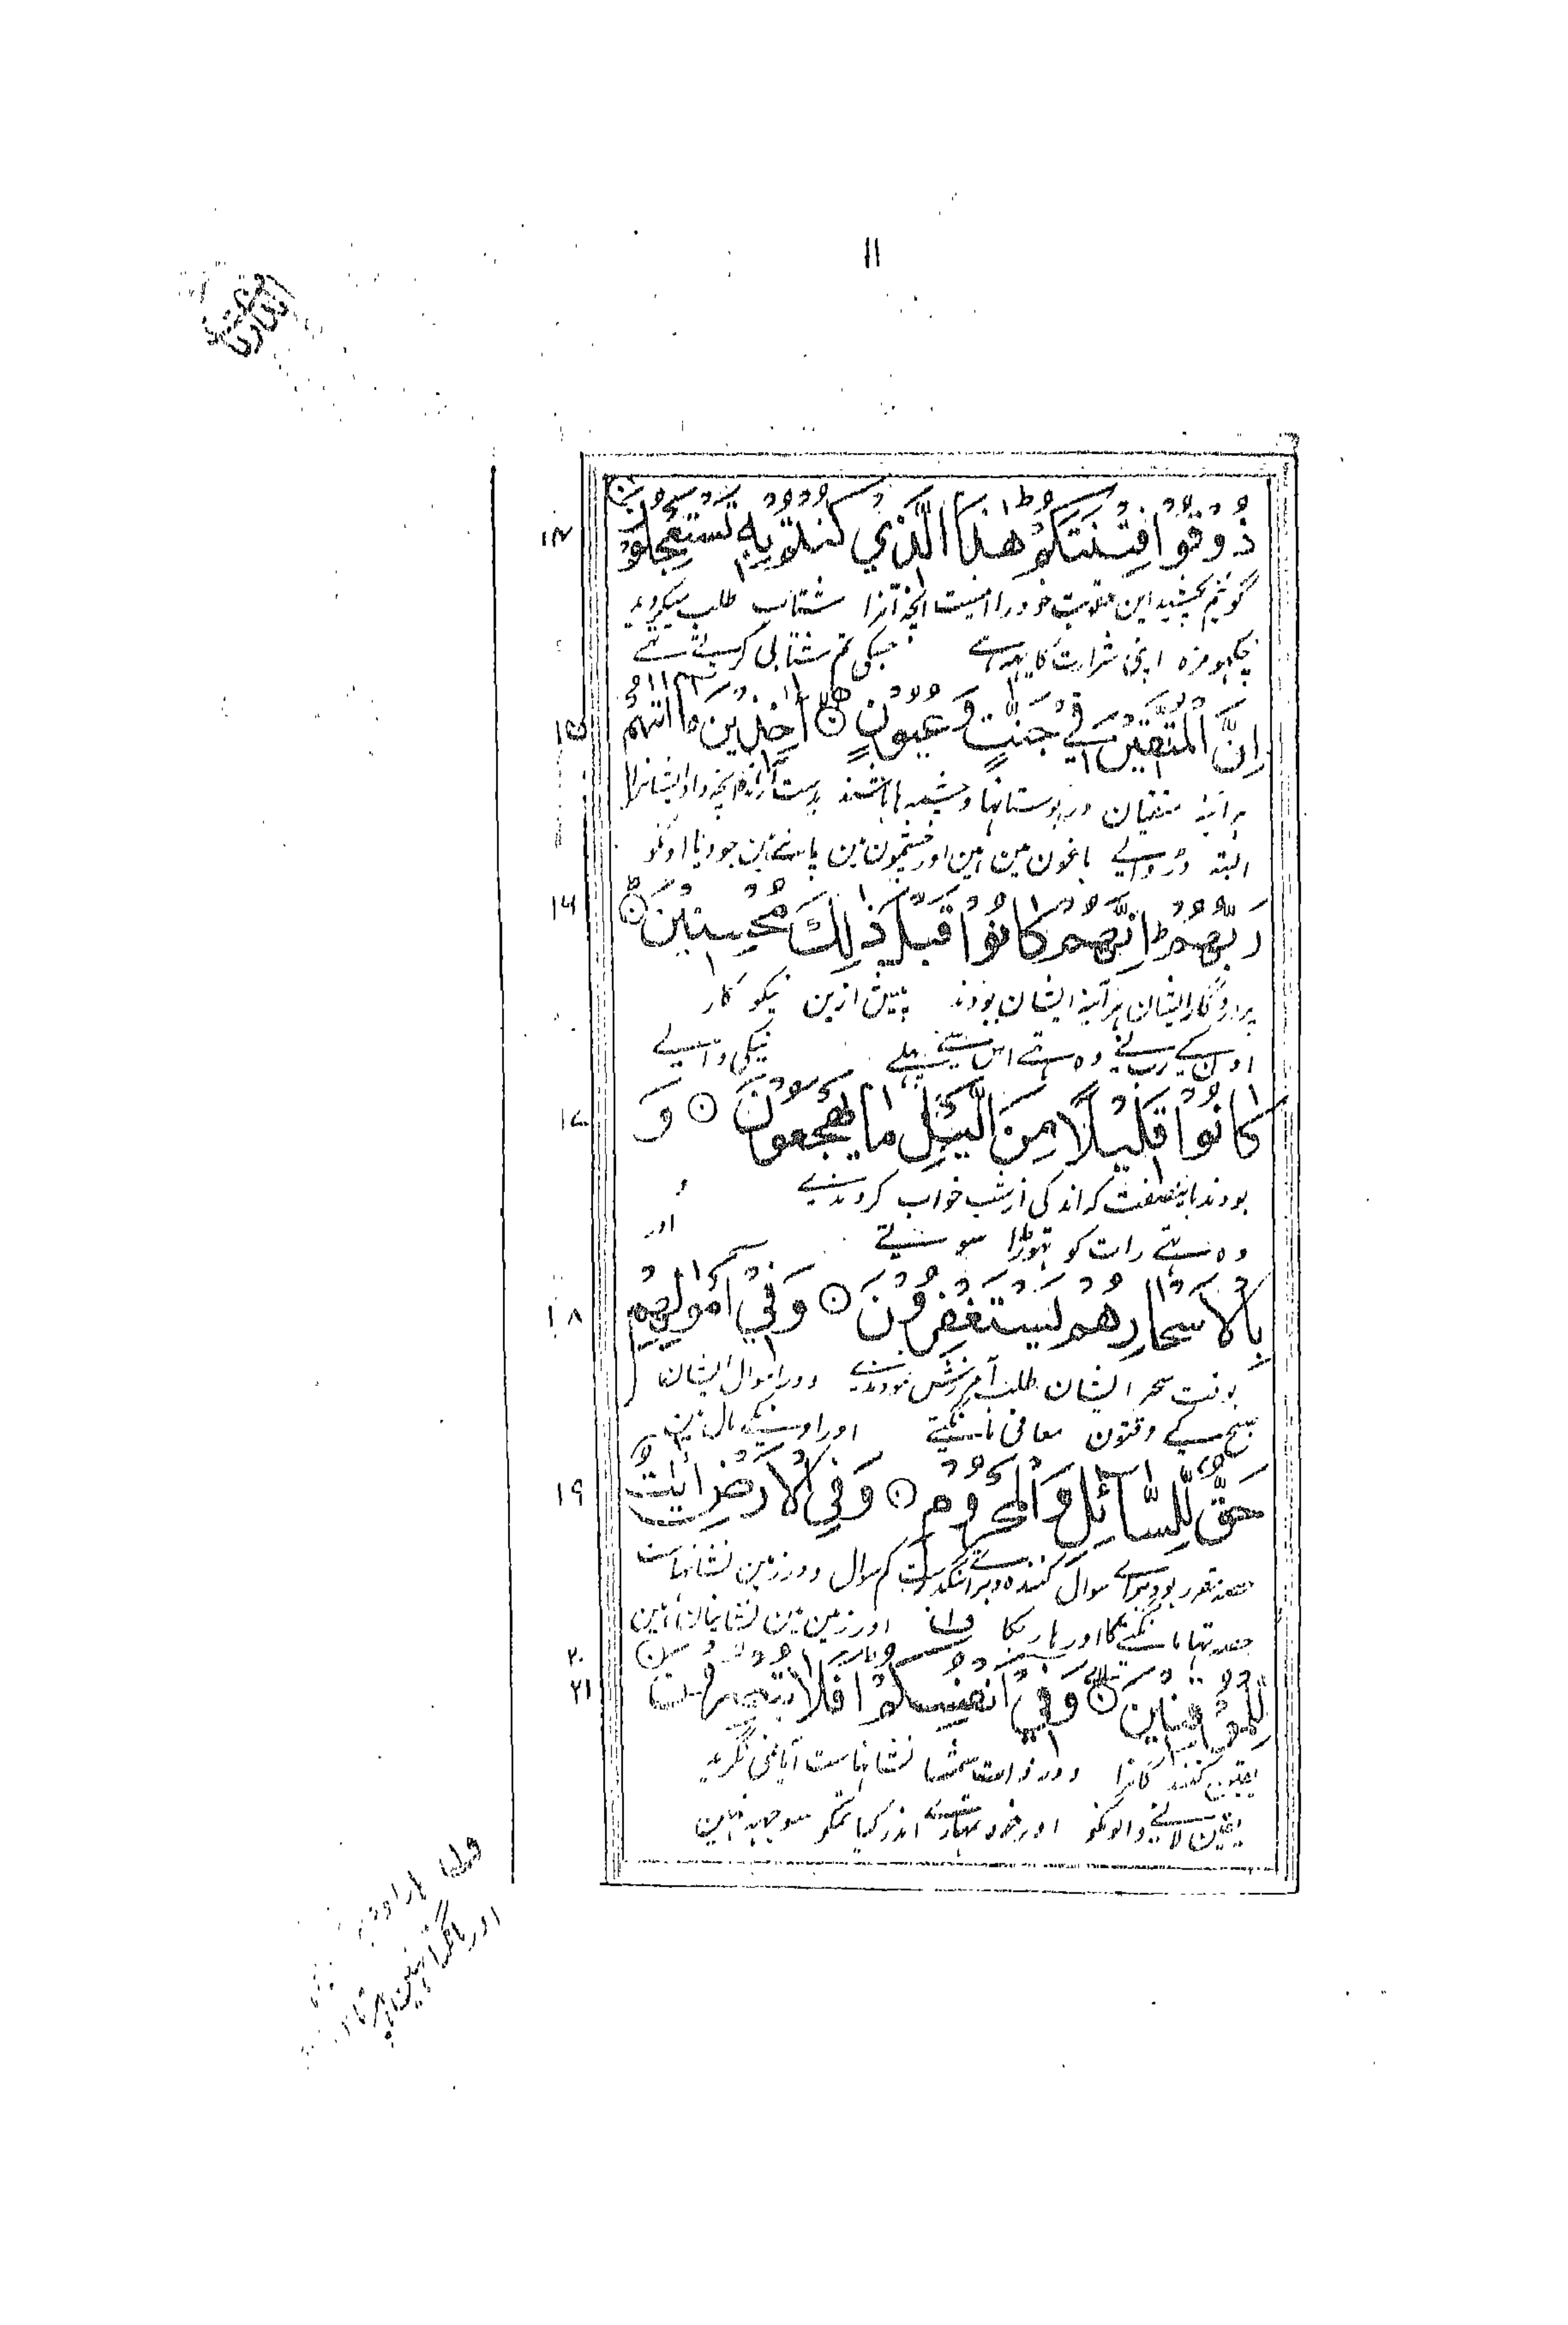 ۱۱
ذُوْقُوْا فِتْنَتَكُمْ ؕ هٰذَا الَّذِيْ كُنْتُمْ بِهٖ تَسْتَعْجِلُوْنَ ۱۴
گوئیم بچشید این عقوبت خود را اینست آنچه آنرا شتاب طلب میکردید
چکهو مزه اپنی شرارت کا یہہ ہے جسکی تم شتابی کرتے تهے
اِنَّ الْمُتَّقِيْنَ فِيْ جَنّٰتٍ وَّ عُيُوْنٍ ۙ اٰخِذِيْنَ مَا اٰتٰىهُمْ ۱۵
هر آئنه متقیان در بوستانها و چشمه‌ها باشند بدست آرنده آنچه داد ایشانرا
البته ڈر والے باغون مین هین اور چشمون مین پاتے هین جو دیا اونکو
رَبُّهُمْ ؕ اِنَّهُمْ كَانُوْا قَبْلَ ذٰلِكَ مُحْسِنِيْنَ ؕ ۱۶
پروردگار ایشان هر آئنه ایشان بودند پیش ازین نیکو کار
اون کے رب نے وه تهے اس سے پہلے نیکی والے
كَانُوْا قَلِيْلًا مِنَ الَّيْلِ مَا يَهْجَعُوْنَ وَ ۱۷
بودند باینصفت که اندکی از شب خواب کردندے و
وه تهے رات کو تهوڑا سوتے اور
بِالْاَسْحَارِ هُمْ يَسْتَغْفِرُوْنَ وَ فِيْ اَمْوٰلِهِمْ ۱۸
بوقت سحر ایشان طلب آمرزش نمودندے و در اموال ایشان
صبح کے وقتون معافی مانگتے اور اونکے مال مین
حَقٌّ لِّلسَّآئِلِ وَ الْمَحْرُوْمِ وَ فِي الْاَرْضِ اٰيٰتٌ ۱۹
حصه مقرر بود برای سوال کننده و برای تنگدست کم سوال و در زمین نشانهاست
حصه تها مانگتے کا اور هارے کا ف۱ اور زمین مین نشانیان هین
لِّلْمُوْقِنِيْنَ وَ فِيْ اَنْفُسِكُمْ اَفَلَا تُبْصِرُوْنَ ۲۰ ۲۱
یقین کنندگانرا و در ذات شما نشانهاست آیا نمی نگرید
یقین لانے والونکو اور خود تمہارے اندر کیا تمکو سوجهه نہین
ف۱ هارا وه
اور مانگتا نہین پهرتا